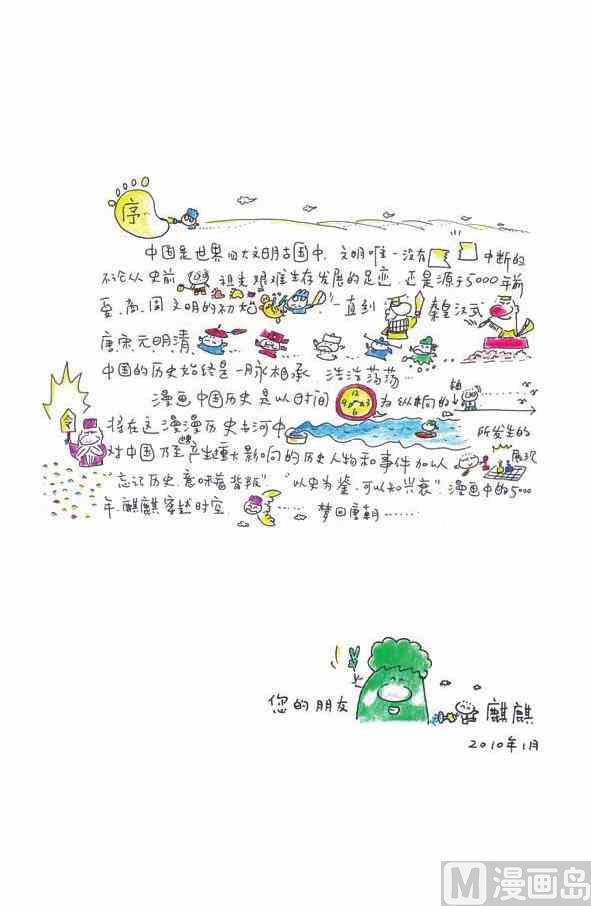 序
中国是世界四大文明古国中，文明唯一没有 中断的
不论从史前 祖先艰难生存发展的足迹，还是源于5000年前
夏、商、周文明的初始 一直到 秦皇汉武
唐宋元明清
中国的历史始终是一脉相承 浩浩荡荡…
漫画中国历史是以时间 为纵横向的轴
将在这漫漫历史长河中 所发生的
对中国乃至世界产生重大影响的历史人物和事件加以 展现
"忘记历史，意味着背叛" "以史为鉴，可以知兴衰" 漫画中的5000
年，麒麒穿越时空 …… 梦回唐朝……
令
您的朋友 麒麒
2010年1月
M 漫画岛